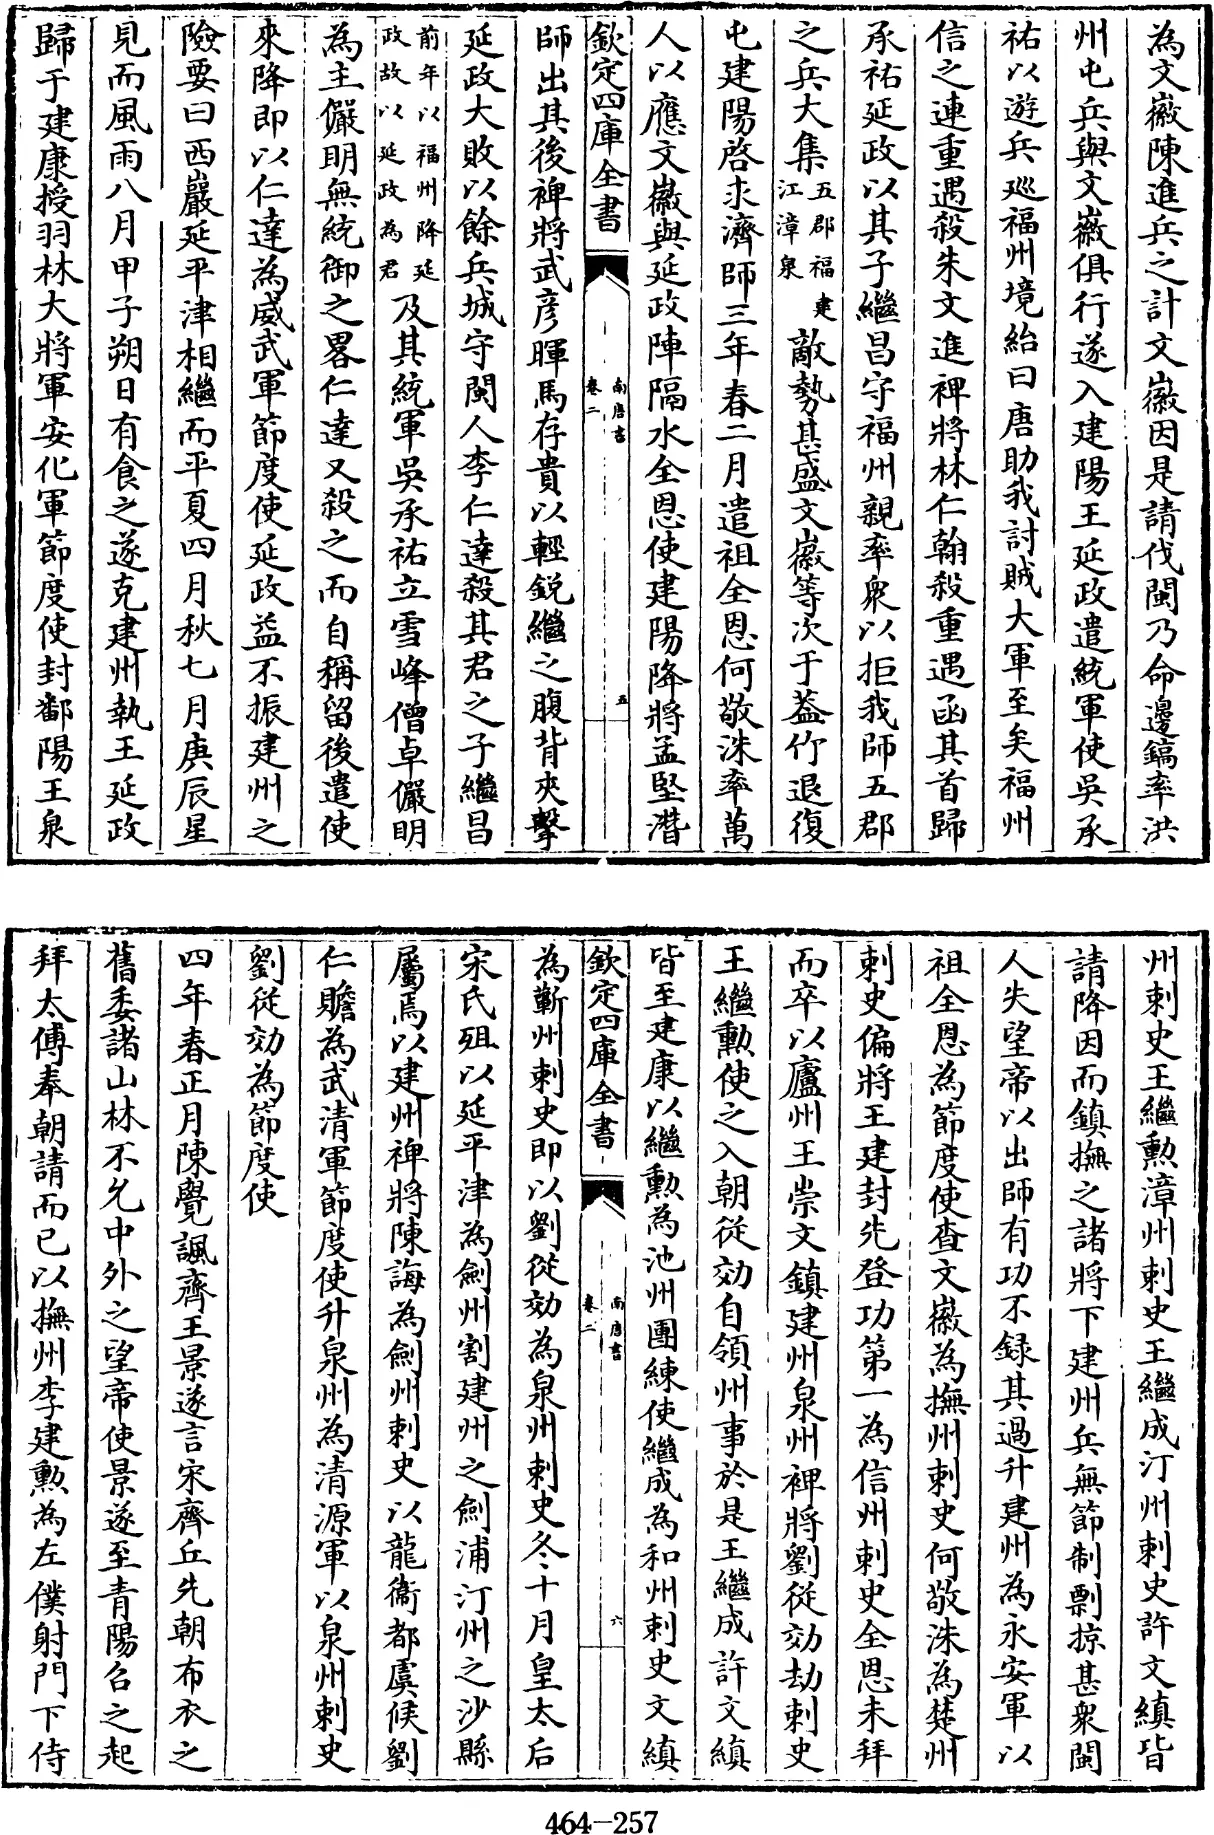 為文徽陳進兵之計文徽因是請伐閩乃命邊鎬率洪
州屯兵與文徽俱行遂入建陽王延政遣統軍使吳承
祐以遊兵廵福州境紿曰唐助我討賊大軍至矣福州
信之連重遇殺朱文進裨將林仁翰殺重遇函其首歸
承祐延政以其子繼昌守福州親率衆以拒我師五郡
之兵大集五郡福建江漳泉敵勢甚盛文徽等次于葢竹退復
屯建陽啓求濟師三年春二月遣祖全恩何敬洙率萬
人以應文徽與延政陣隔水全恩使建陽降將孟堅潛
欽定四庫全書
南唐書
卷二
五
師出其後裨將武彦暉馬存貴以輕鋭繼之腹背夾擊
延政大敗以餘兵城守閩人李仁達殺其君之子繼昌
前年以福州降延政故以延政為君及其統軍吳承祐立雪峰僧卓儼明
為主儼明無統御之畧仁達又殺之而自稱留後遣使
來降即以仁達為威武軍節度使延政益不振建州之
險要曰西巖延平津相繼而平夏四月秋七月庚辰星
見而風雨八月甲子朔日有食之遂克建州執王延政
歸于建康授羽林大將軍安化軍節度使封鄱陽王泉
州刺史王繼勲漳州刺史王繼成汀州刺史許文縝皆
請降因而鎮撫之諸將下建州兵無節制剽掠甚衆閩
人失望帝以出師有功不録其過升建州為永安軍以
祖全恩為節度使查文徽為撫州刺史何敬洙為楚州
刺史偏將王建封先登功第一為信州刺史全恩未拜
而卒以廬州王崇文鎮建州泉州裨將劉從効劫刺史
王繼勲使之入朝從効自領州事於是王繼成許文縝
皆至建康以繼勲為池州團練使繼成為和州刺史文縝
欽定四庫全書
南唐書
卷二
六
為蘄州刺史即以劉從効為泉州刺史冬十月皇太后
宋氏殂以延平津為劍州割建州之劍浦汀州之沙縣
屬焉以建州裨將陳誨為劍州刺史以龍衞都虞候劉
仁贍為武清軍節度使升泉州為清源軍以泉州刺史
劉從効為節度使
四年春正月陳覺諷齊王景遂言宋齊丘先朝布衣之
舊委諸山林不允中外之望帝使景遂至青陽召之起
拜太傅奉朝請而已以撫州李建勲為左僕射門下侍
464-257